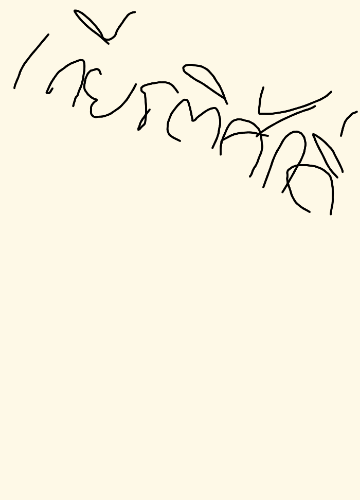 เกียรติศักดิ์